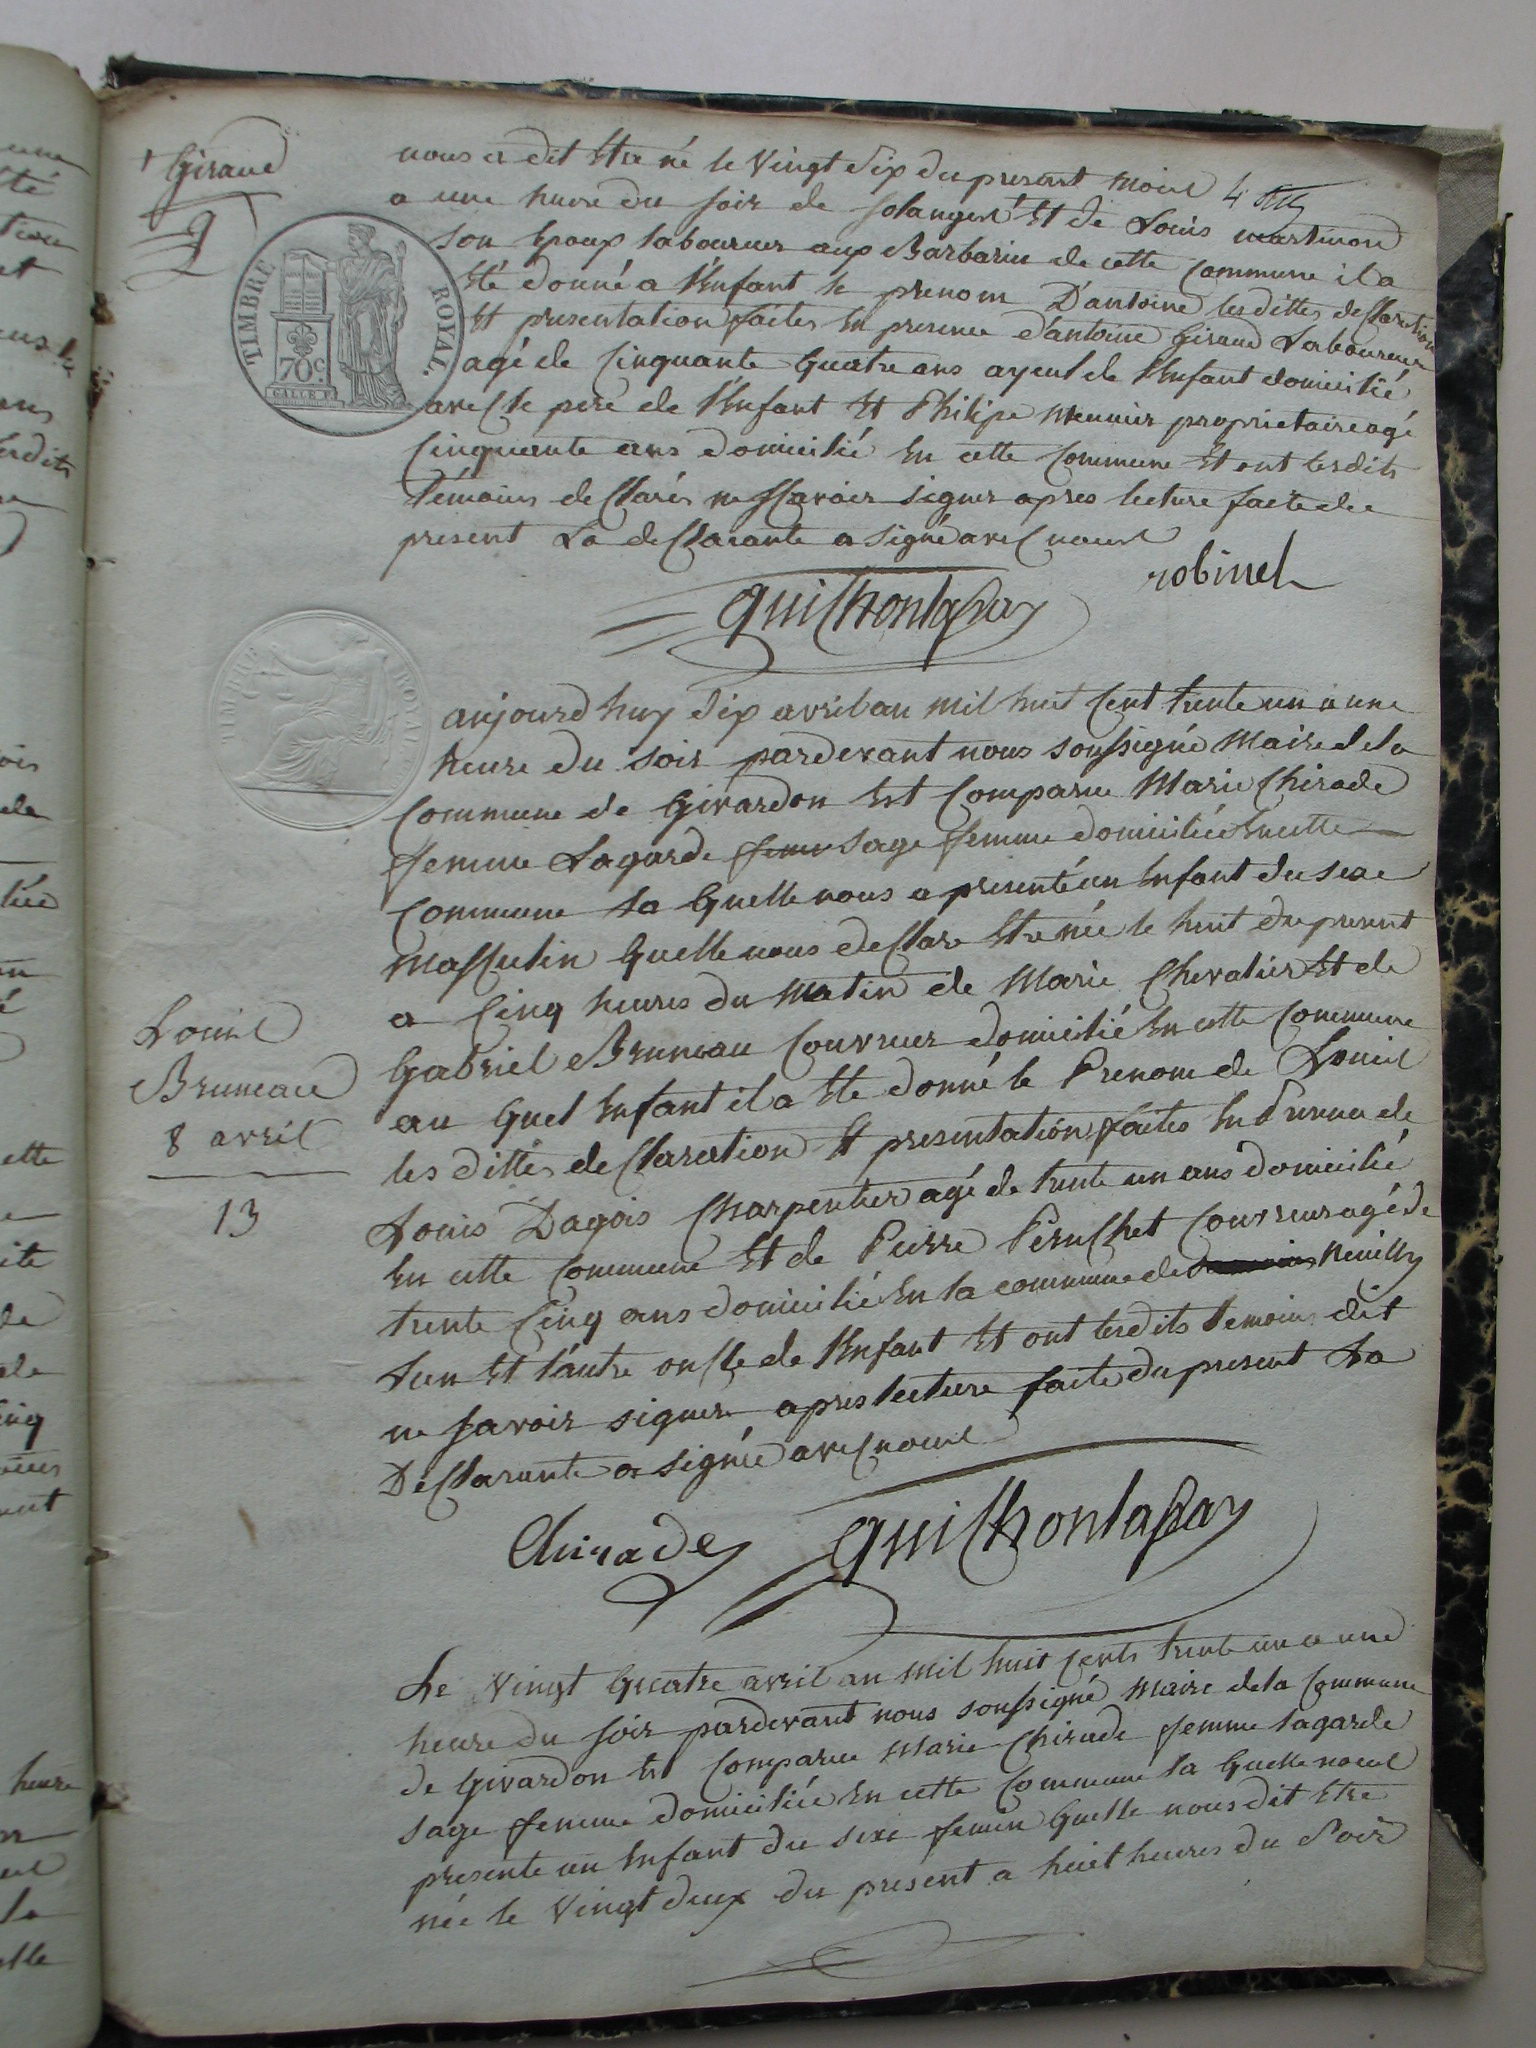 Giraud
nous a dit Etre né le Vingt Six du present mois
a une heure du soir de solange et de Louis martinon
son Epoux laboureur aux Barbarin de cette Commune il a
Eté donné a l'Enfant le prenom D'antoine les dittes declaration
Et presentation faites En presence d'antoine Giraud Laboureur
agé de Cinquante Quatre ans ayeul de l'Enfant domicilié
avec le pere de l'Enfant Et Philipe Meunier proprietaire agé
Cinquante ans domicilié En cette Commune Et ont lesdits
témoins declarés ne sçavoir signer apres lecture faite du
present La declarante a signé avec nous
robinet
TIMBRE ROYAL.
70c.
TIMBRE ROYAL
aujourdhuy dix avril an mil huit Cent trente un a une
heure du soir pardevant nous soussigné Maire de la
Commune de Givardon Est Comparue Marie Chirade
femme Lagarde sage femme domiciliée En cette
Commune la Quelle nous a presenté un Enfant du sexe
masculin Quelle nous declare Etre née le huit du present
a Cinq heures du matin de Marie Chevalier Et de
Gabriel Bruneau Couvreur domicilié En cette Commune
au Quel Enfant il a Ete donné le Prenom de Louis
les dittes declaration Et presentation faites En Presence de
Louis Dagois Charpentier agé de trente un ans domicilié
En cette Commune Et de Pierre Peruchet Couvreur agé de
trente Cinq ans domicilié En la commune de Neuilly
L'un Et l'autre oncle de l'Enfant Et ont lesdits temoins dit
ne savoir signer apres lecture faite du present La
Declarante a signée avec nous
Louis
Bruneau
8 avril
13
Chirade
Le Vingt Quatre avril an mil huit Cents trente un a une
heure du soir pardevant nous soussigné Maire de la Commune
de Givardon Est Comparue Marie Chirade femme lagarde
sage femme domiciliée En cette Commune la Quelle nous
presente un Enfant du sexe femin Quelle nous dit Etre
née le Vingt deux du present a huit heures du Soir